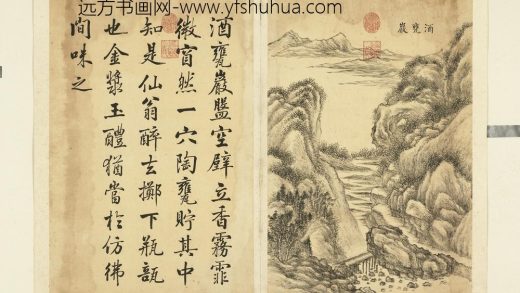 远方书画网-www.yfshuhua.com
酒甕巖
酒甕巖盤空壁立香霧霏
微窅然一穴陶甕貯其中
知是仙翁醉去擲下瓶瓿
也金漿玉醴猶當於仿彿
間味之